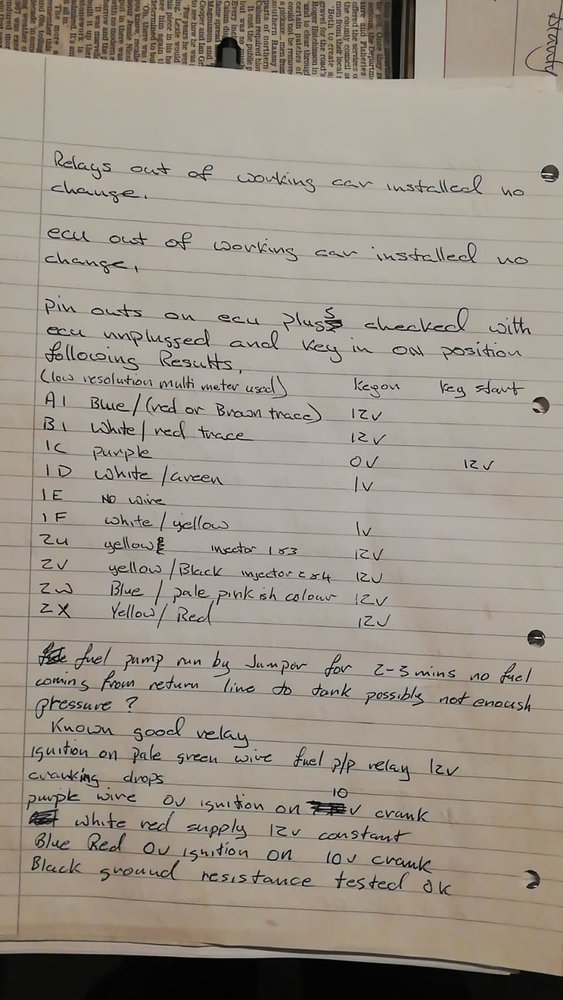 study
Relays out of working car installed no
change.
ecu out of working car installed no
change,
pin outs on ecu plugs checked with
ecu unplugged and key in on position
following Results,
(low resolution multi meter used) Keyon key start
A1 Blue/(red or Brown trace) 12V
B1 white/red trace 12V
1C purple 0V 12V
1D white/Green 1V
1E No wire
1F white/yellow 1V
2U yellow injector 1&3 12V
2V yellow/Black injector 2&4 12V
2W Blue/pale pinkish colour 12V
2X Yellow/Red 12V
fuel pump run by Jumper for 2-3 mins no fuel
coming from return line to tank possibly not enough
pressure?
Known good relay
ignition on pale green wire fuel p/p relay 12V
cranking drops
purple wire 0V ignition on 10 V crank
white red supply 12V constant
Blue Red 0V ignition on 10V crank
Black ground resistance tested ok